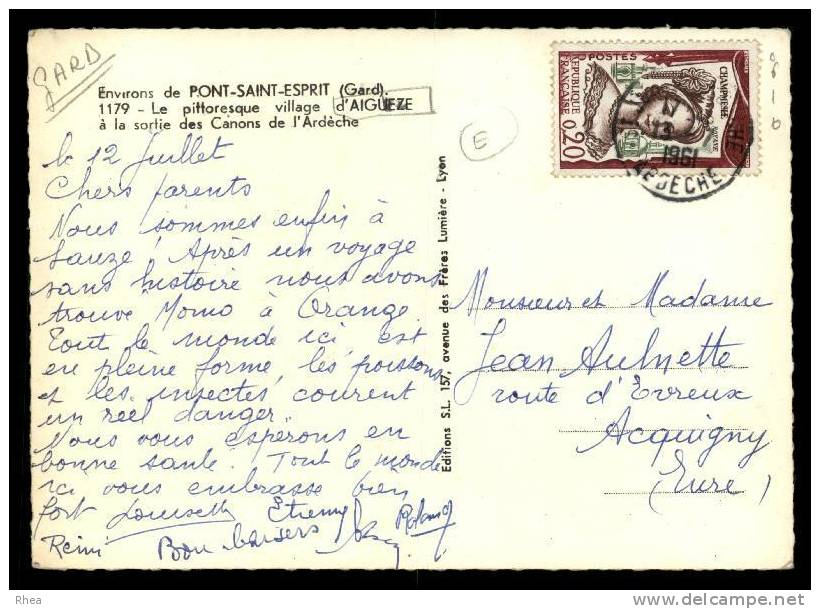 GARD
Environs de PONT-SAINT-ESPRIT (Gard).
1179 - Le pittoresque village d'AIGUÈZE
à la sortie des Canons de l'Ardèche
E
le 12 Juillet
Chers parents
Nous sommes enfin à
Sauze ! Après un voyage
sans histoire nous avons
trouve Momo à Orange.
Tout le monde ici est
en pleine forme, les poissons
et les insectes courent
un réel danger.
Nous vous espérons en
bonne santé. Tout le monde
ici vous embrasse bien
fort
Etienne
Roland
Rémi
Bon baisers
Editions S.L. 157, avenue des Frères Lumière - Lyon
POSTES
REPUBLIQUE
FRANÇAISE
0,20
CHAMPMESLÉ
ROXANE
13
1961
ARDECHE
Monsieur et Madame
Jean Aulnette
route d'Evreux
Acquigny
(Eure)
Rhea
www.delcampe.net